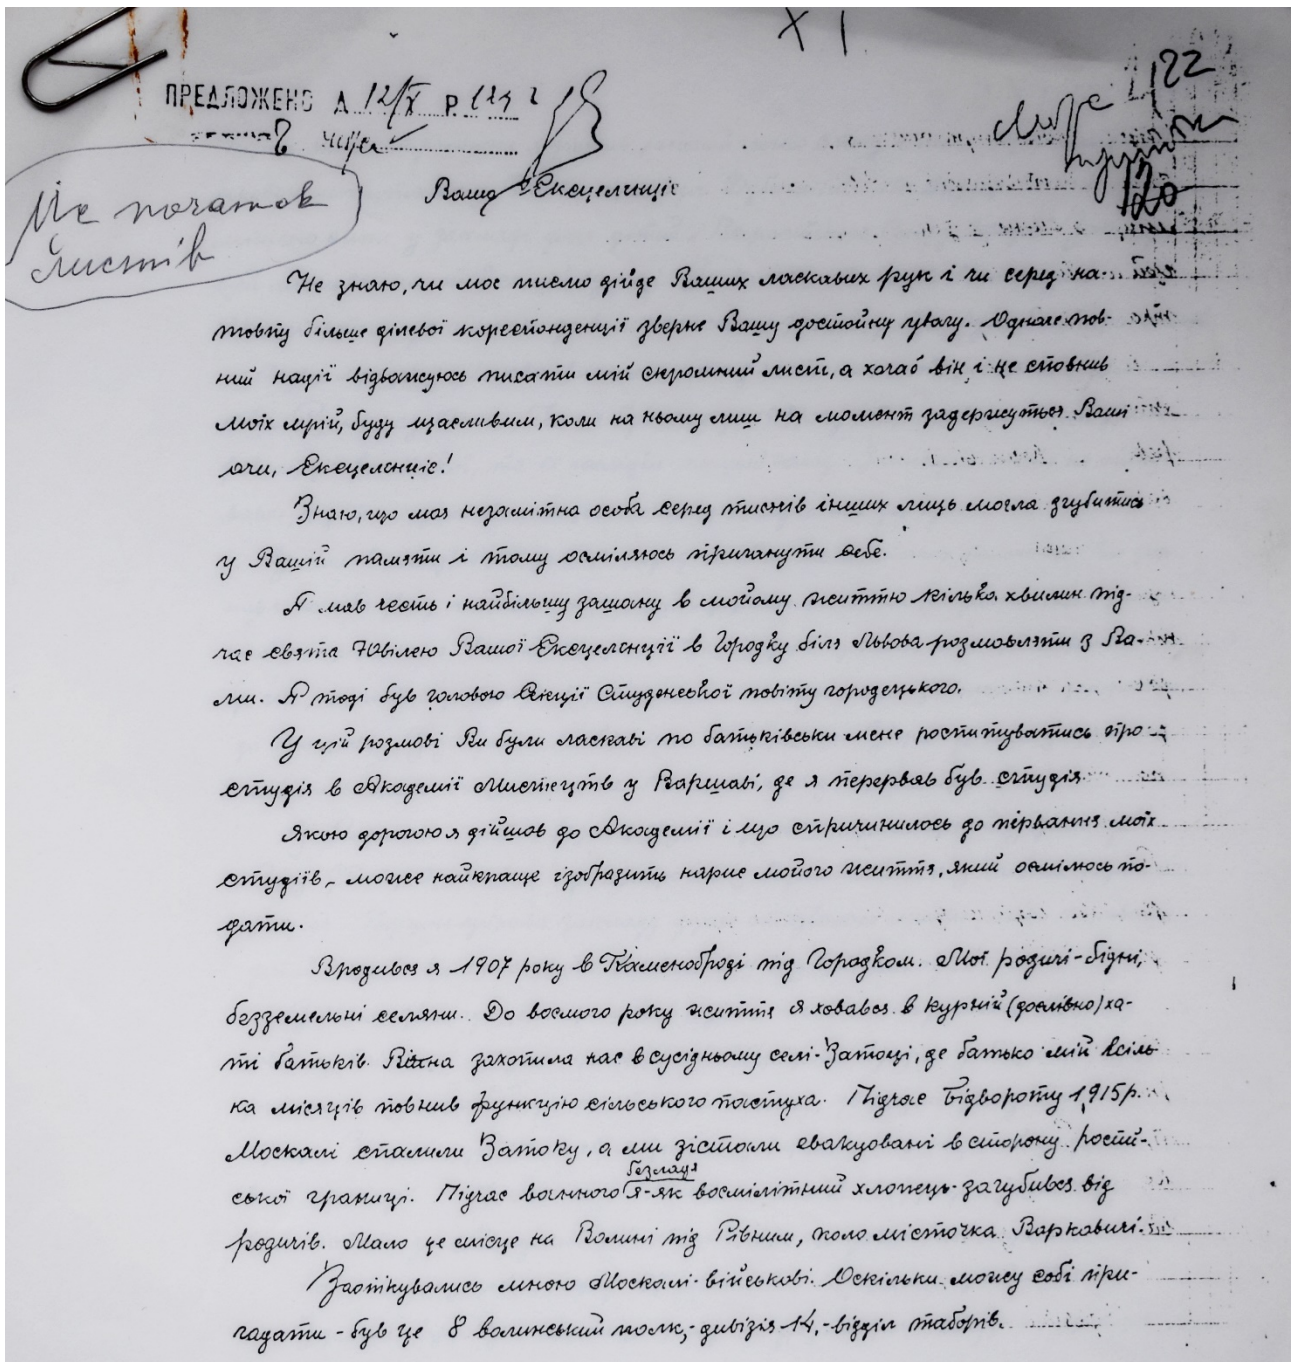 X I
ПРЕДЛОЖЕНО Д. 12/X Р.
422
120
Це початок
листів
Ваша Ексцеленціє
Не знаю, чи моє писмо дійде Ваших ласкавих рук і чи серед на-
товпу більше ділевої кореспонденції зверне Вашу достойну увагу. Одначе пов-
ний надії відважуюсь писати мій скромний лист, а хочаб він і не сповнив
моїх мрій, буду щасливим, коли на ньому лиш на момент задержуться Ваші
очи, Ексцеленціє!
Знаю, що моя незамітна особа серед тисячів інших лиць могла згубитись
у Вашій памяти і тому осміляюсь приганути себе.
Я мав честь і найбільшу зашану в мойому життю кілька хвилин під-
час свята Ювілею Вашої Ексцеленції в Городку біля Львова розмовляти з Ва-
ми. Я тоді був головою Секції Студенської повіту городецького.
У цій розмові Ви були ласкаві по батьківськи мене роспитуватись про
студія в Академії Мистецтв у Варшаві, де я перервав був студія.
Якою дорогою я дійшов до Академії і що спричинилось до пірвання моїх
студіїв, - може найкраще ізобразить нарис мойого життя, який осмілюсь по-
дати.
Вродився я 1907 року в Каменоброді під Городком. Мої родичі - бідні,
безземельні селяни. До восмого року життя я ховався в курній (дослівно) ха-
ті батьків. Війна захопила нас в сусідньому селі - Затоці, де батько мій кіль-
ка місяців повнив функцію сільського пастуха. Підчас відвороту 1915 р.
Москалі спалили Затоку, а ми зістали евакуовані в сторону росій-
безладя
ської границі. Підчас воєнного я - як восмилітний хлопець - загубився від
родичів. Мало це місце на Волині під Рівним, коло місточка Варковичі.
Заопікувались мною Москалі - військові. Оскільки можу собі при-
гадати - був це 8 волинський полк, - дивізія 14, - відділ таборів.